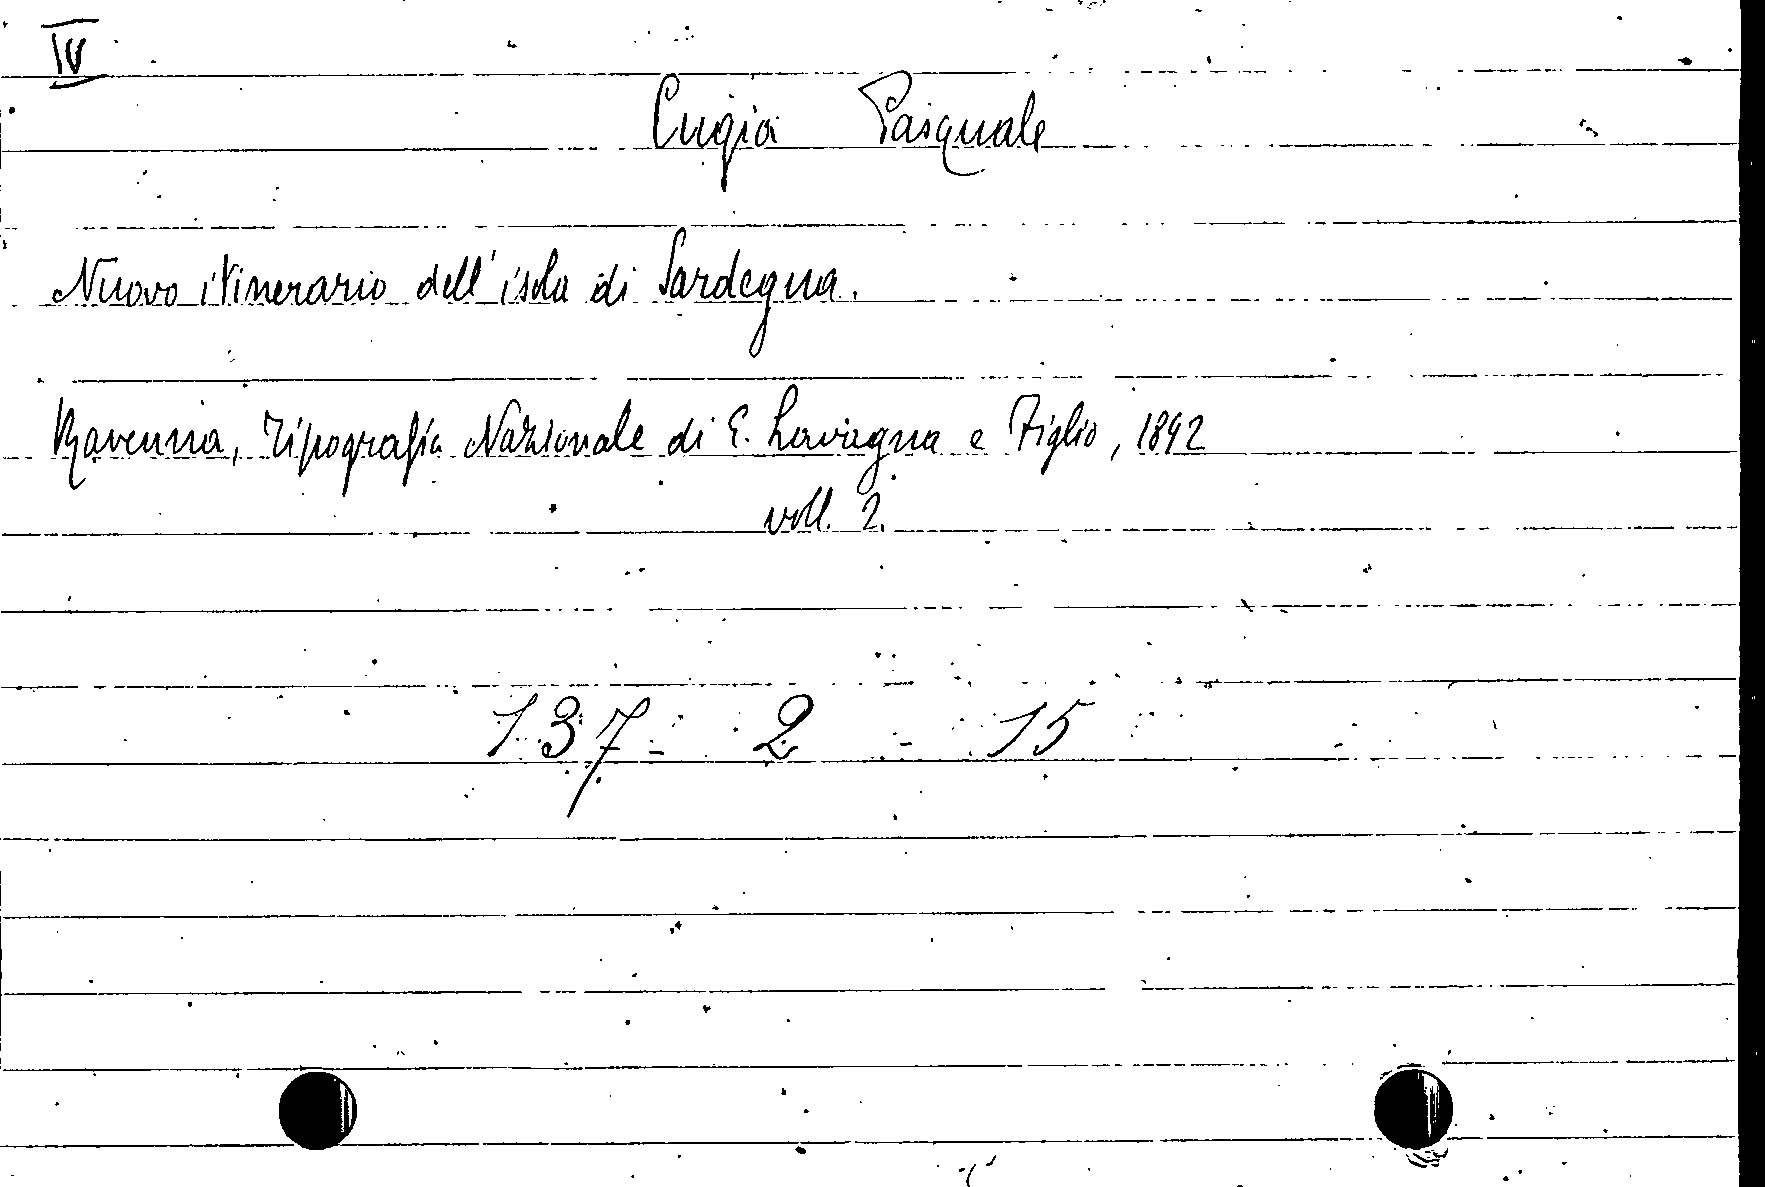 IV
Cugia Pasquale
Nuovo itinerario dell'isola di Sardegna.
Ravenna, Tipografia Nazionale di E. Lavagna e Figlio, 1892
voll. 2.
137 - 2 - 15